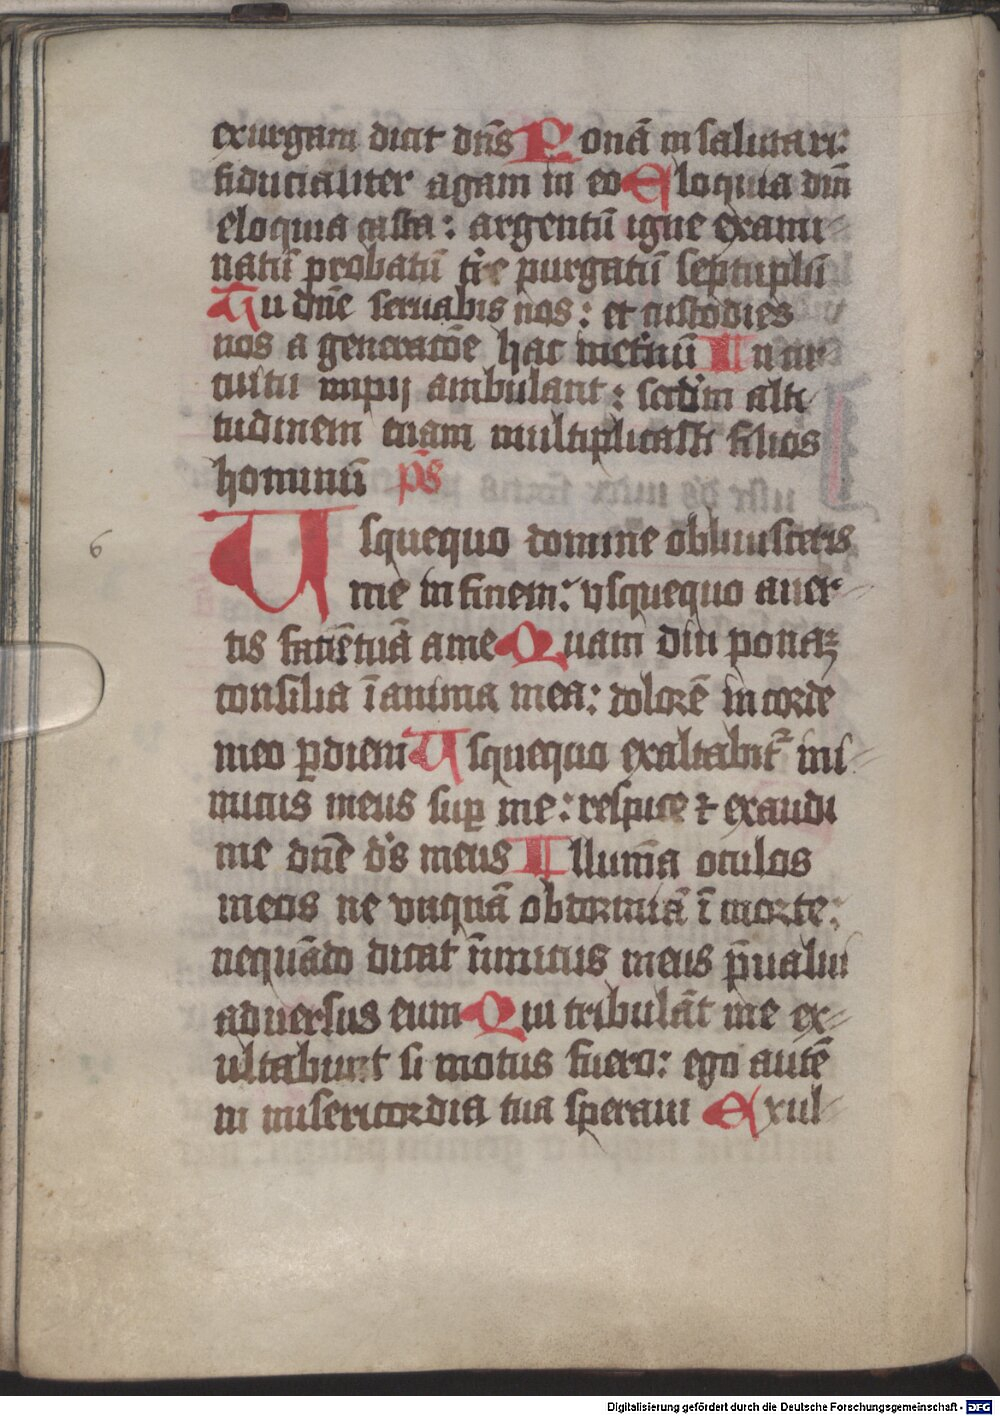 exurgam dicit dn̄s Ponā in salutari:
fiducialiter agam in eo Eloquia dn̄i
eloquia casta: argentū igne exami-
natū probatū tr̄e purgatū septuplū
Tu dn̄e seruabis nos: et custodies
nos a generacōe hac inet̓nū In cir
cuitu impij ambulant: scd̓m alti-
tudinem tuam multiplicasti filios
hominū p̄s
Usquequo domine obliuisceris
6
me in finem: vsquequo auer-
tis faciē tuā a me Quam diu ponaꝫ
consilia ī anima mea: dolorē in corde
meo ꝑ diem Usquequo exaltabit̓ ini-
micus meus suꝑ me: respice ⁊ exaudi
me dn̄e d̓s meus Illumīa oculos
meos ne vnquā obdormiā ī morte:
nequādo dicat īimicus meus p̄ualui
aduersus eum Qui tribulāt me ex-
ultabunt si motus fuero: ego autē
in misericordia tua speraui Exul-
Digitalisierung gefördert durch die Deutsche Forschungsgemeinschaft - DFG